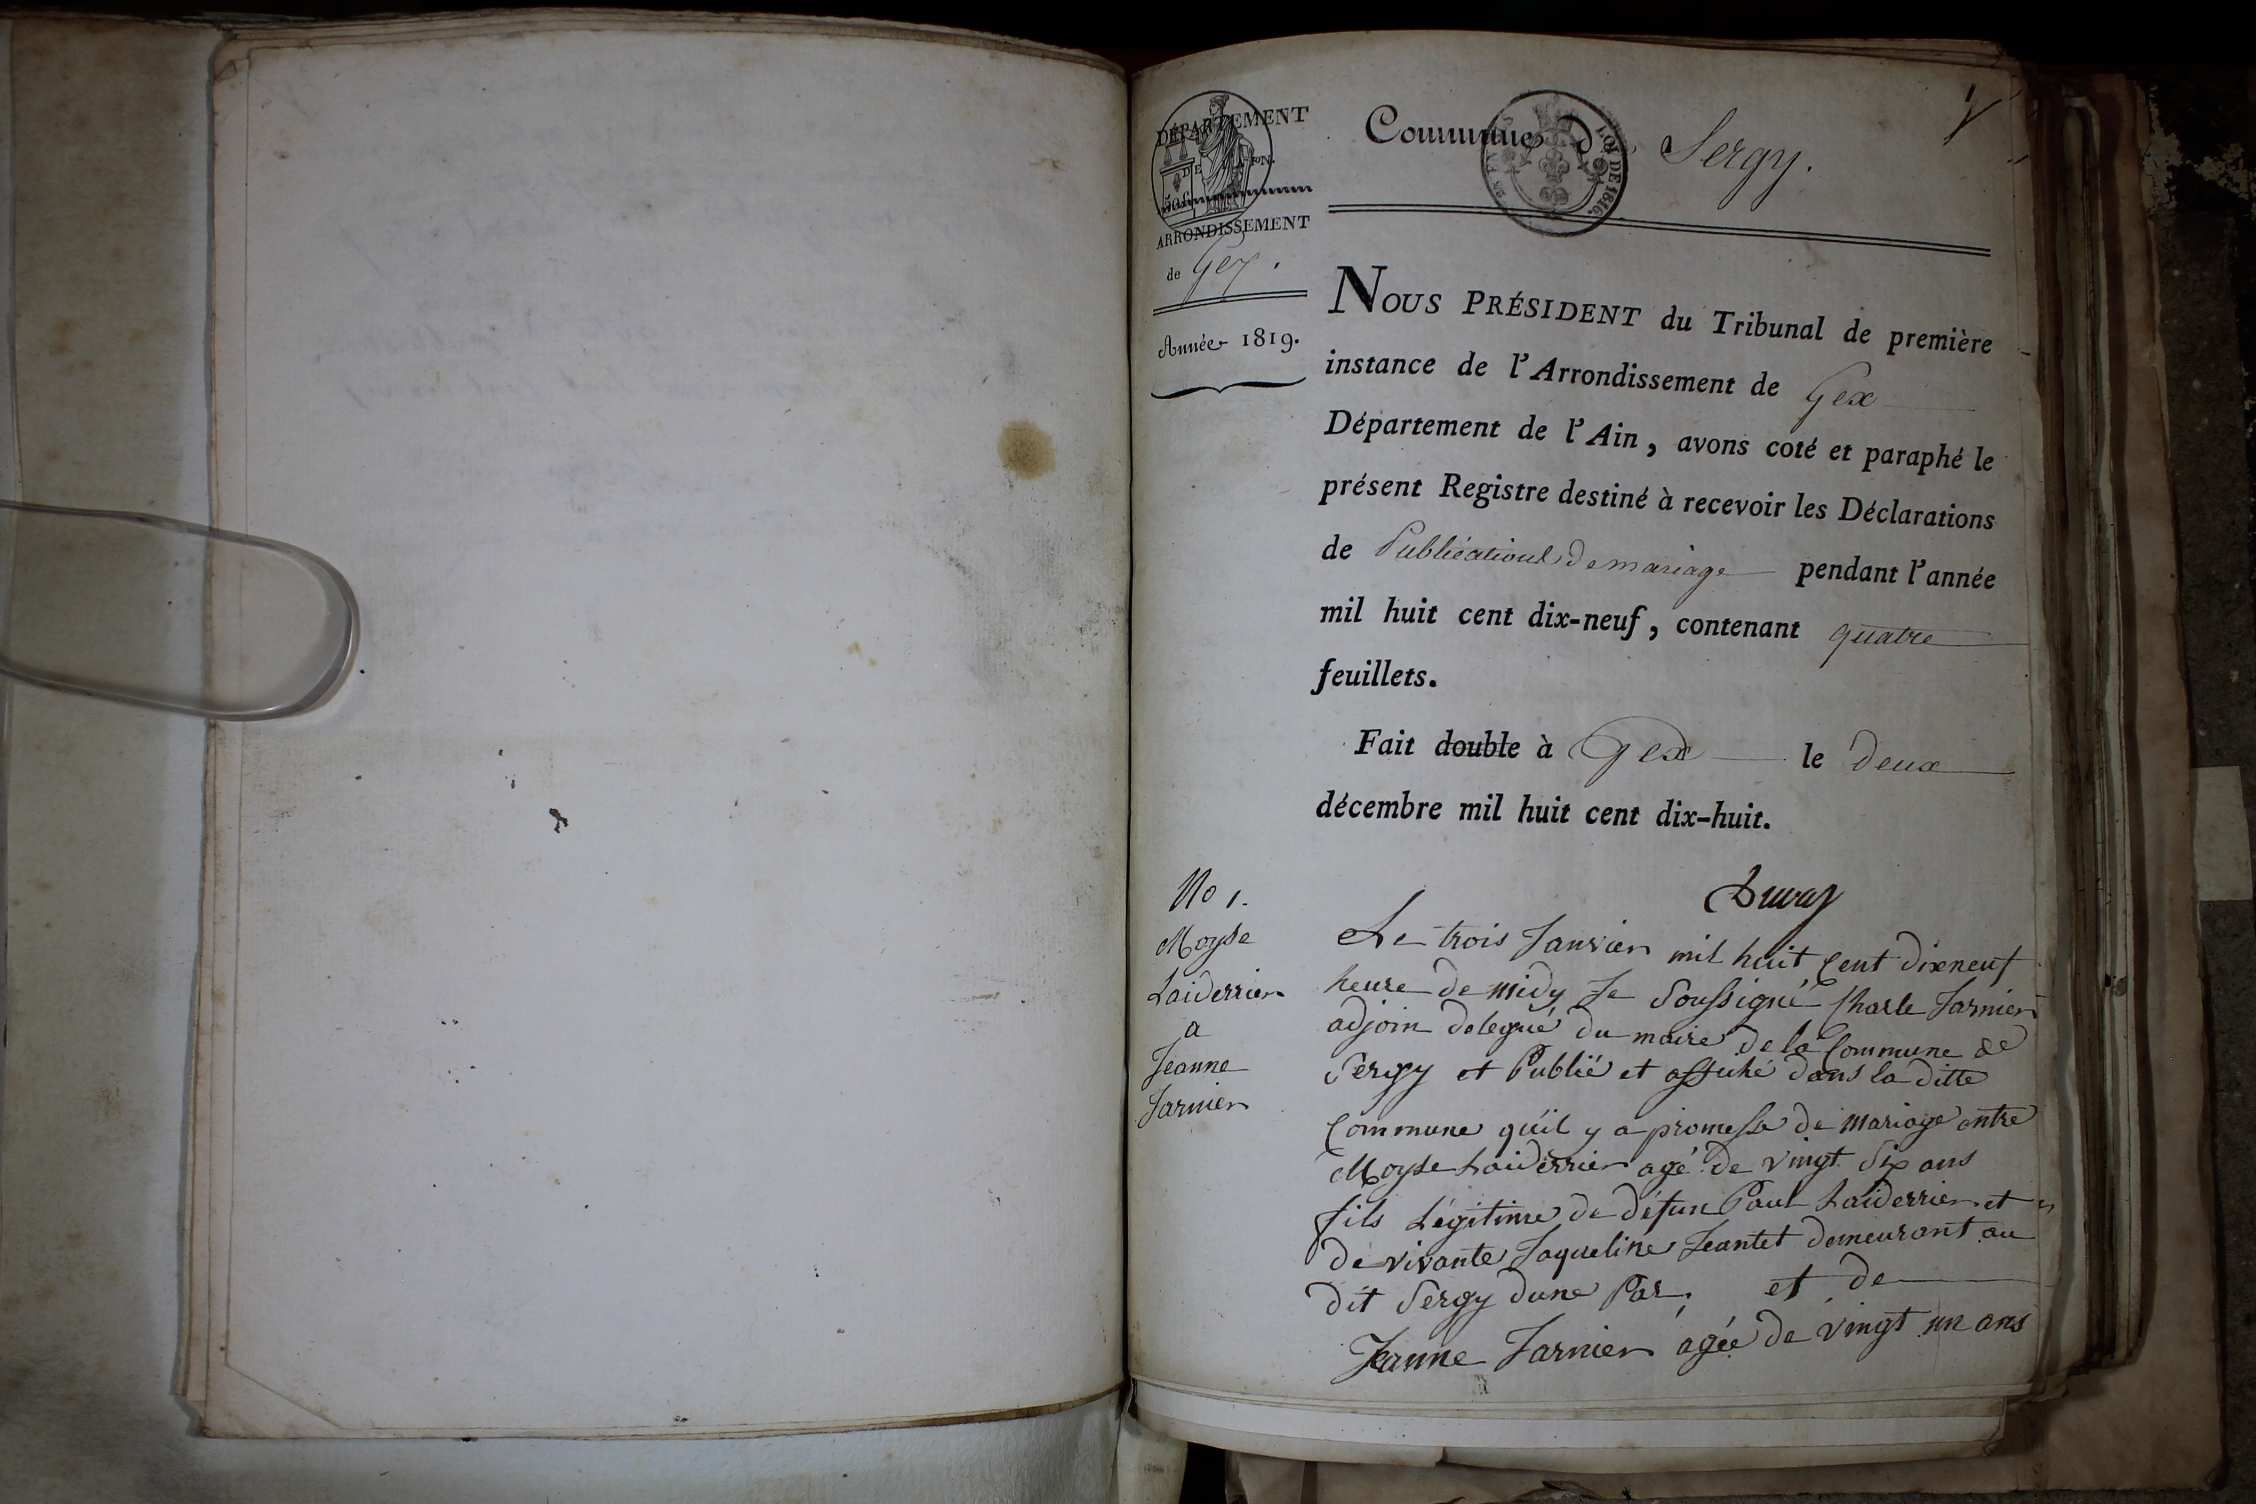 DÉPARTEMENT
DE L'AIN.
50 c
ARRONDISSEMENT
de Gex.
Année 1819.
Commune d Sergy.
LOI DE 1816.
1
NOUS PRÉSIDENT du Tribunal de première
instance de l'Arrondissement de Gex
Département de l'Ain, avons coté et paraphé le
présent Registre destiné à recevoir les Déclarations
de Publications de mariage pendant l'année
mil huit cent dix-neuf, contenant quatre
feuillets.
Fait double à Gex le deux
décembre mil huit cent dix-huit.
No 1.
Moyse
Laiderrier
a
Jeanne
Jarnier
Le trois Janvier mil huit Cent dixneuf
heure de midy Je Soussigné Charle Jarnier
adjoin delegué du maire de la Commune de
Sergy et Publié et affiché dans la ditte
Commune qu'il y a promesse de mariage entre
Moyse Laiderrier agé de vingt Six ans
fils Légitime de défun Paul Laiderrier et
de vivante Jaqueline Jeantet demeurant au
dit Sergy dune Par. et de
Jeanne Jarnier agée de vingt un ans